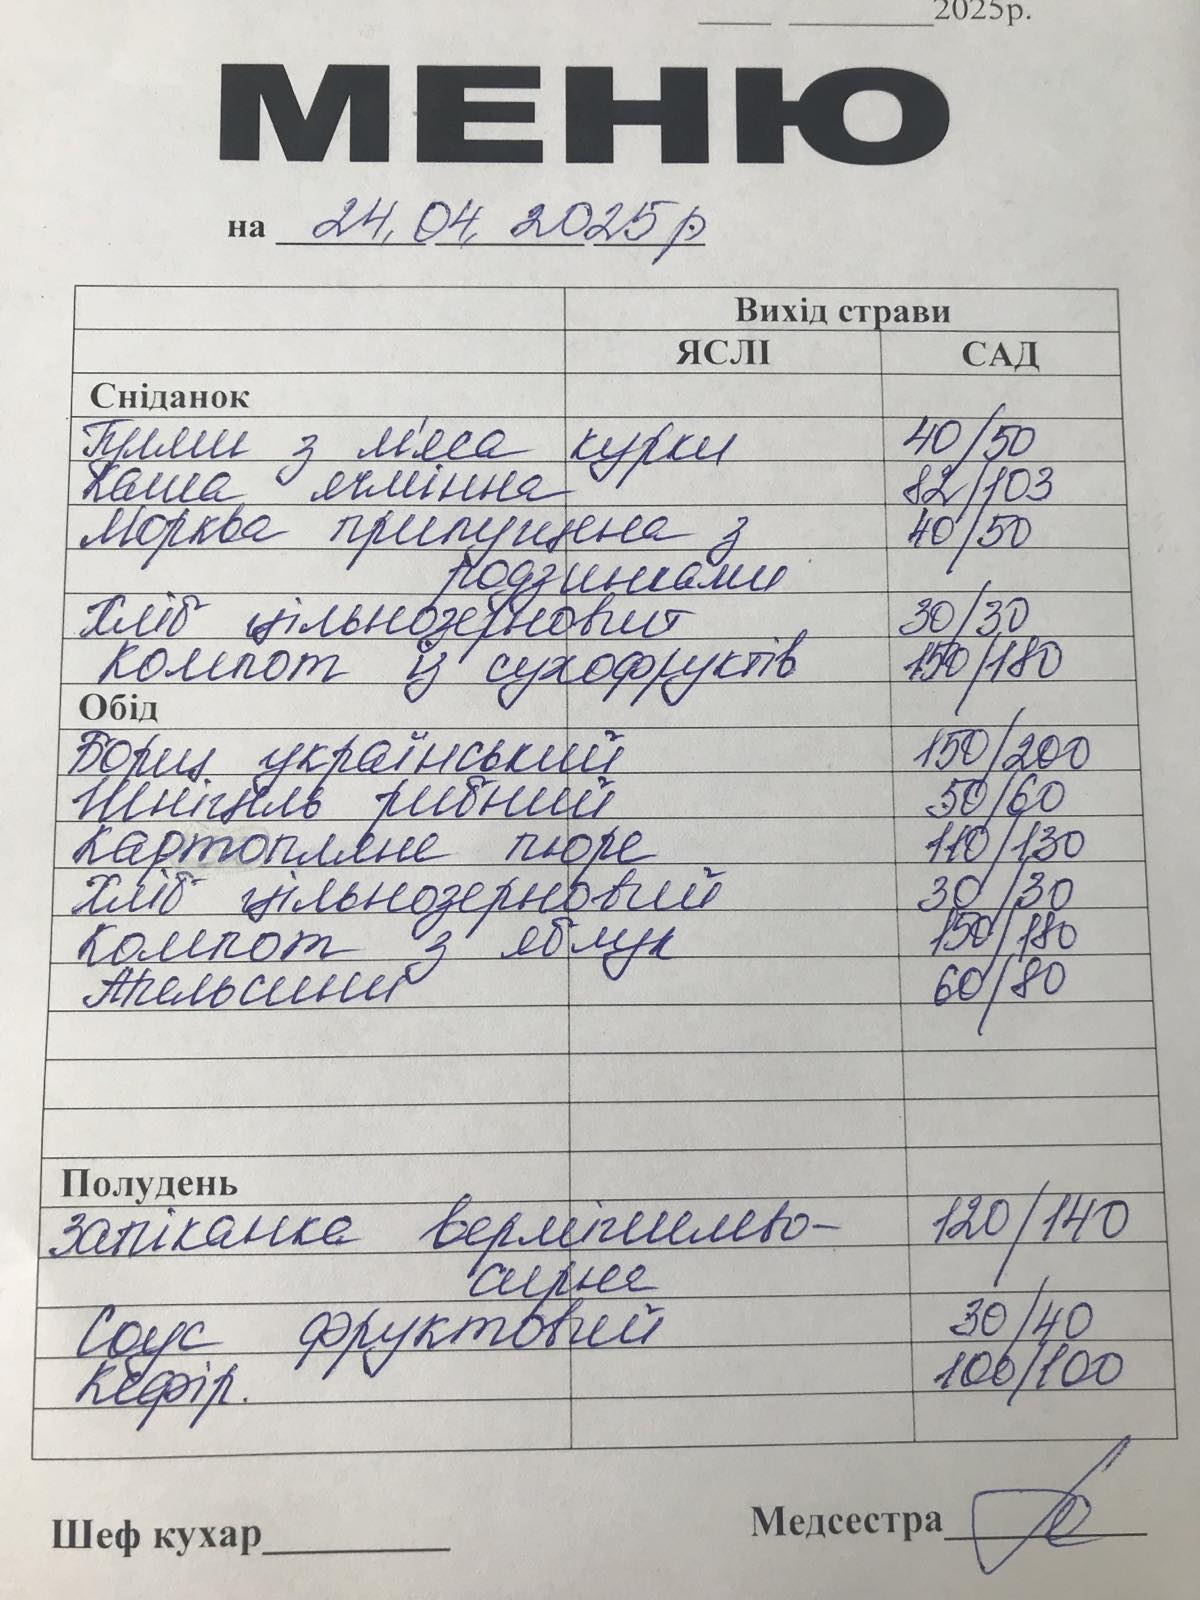 2025р.
МЕНЮ
на 24.04.2025р
Вихід страви
ЯСЛІ САД
Сніданок
з м'яса курки 40/50
Каша ячмінна 82/103
Морква припущена з 40/50
родзинками
Хліб цільнозерновий 30/30
Компот із сухофруктів 150/180
Обід
Борщ український 150/200
Шніцель рибний 50/60
Картопляне пюре 110/130
Хліб цільнозерновий 30/30
Компот з яблук 150/180
Апельсини 60/80
Полудень
Запіканка вермішелево- 120/140
сирна
Соус фруктовий 30/40
Кефір. 100/100
Шеф кухар Медсестра